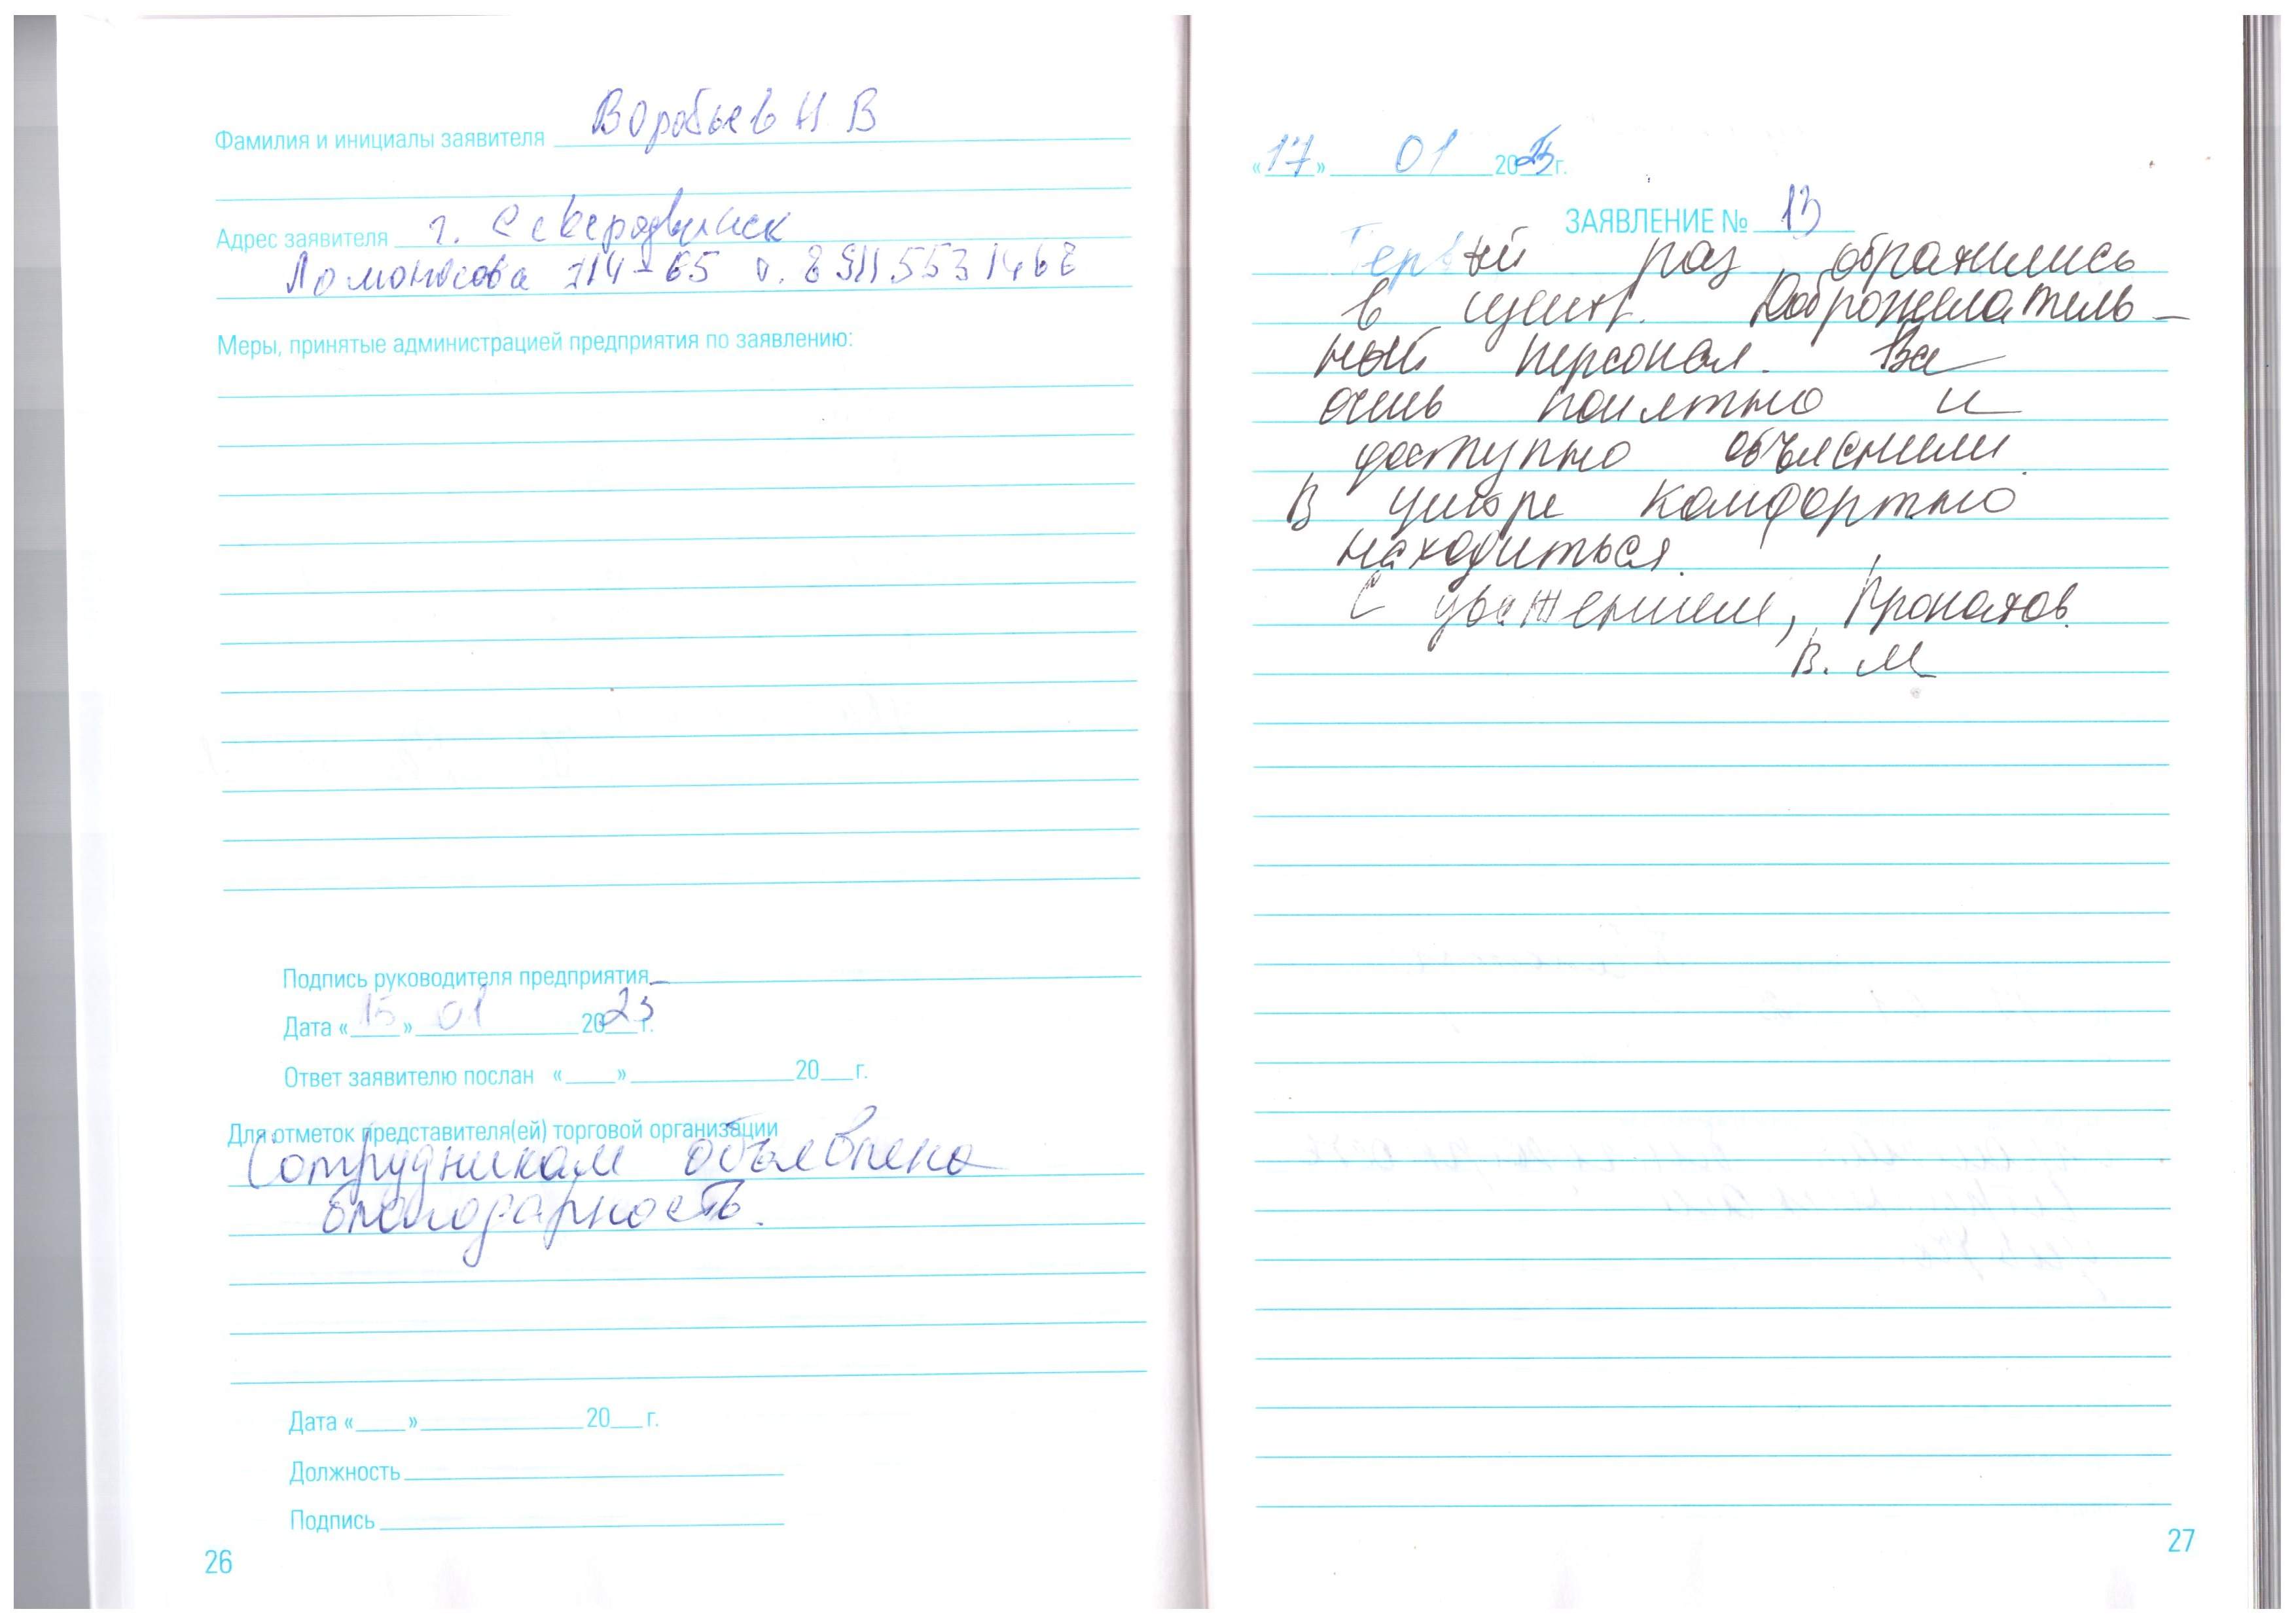 Фамилия и инициалы заявителя Воробьев Н В
Адрес заявителя г. Северодвинск
Ломоносова 114-65 89115531468
Меры, принятые администрацией предприятия по заявлению:
Подпись руководителя предприятия
Дата «15» 01 2023 г.
Ответ заявителю послан «___» ___ 20__ г.
Для отметок представителя(ей) торговой организации
Сотрудникам объявлена
благодарность.
Дата «___» ___ 20__ г.
Должность
Подпись
26
«17» 01 2023 г.
ЗАЯВЛЕНИЕ № 13
Первый раз обратились
в центр. Доброжелатель-
ный персонал. Все
очень понятно и
доступно объяснили.
В центре комфортно
находиться.
С уважением,
В. М
27